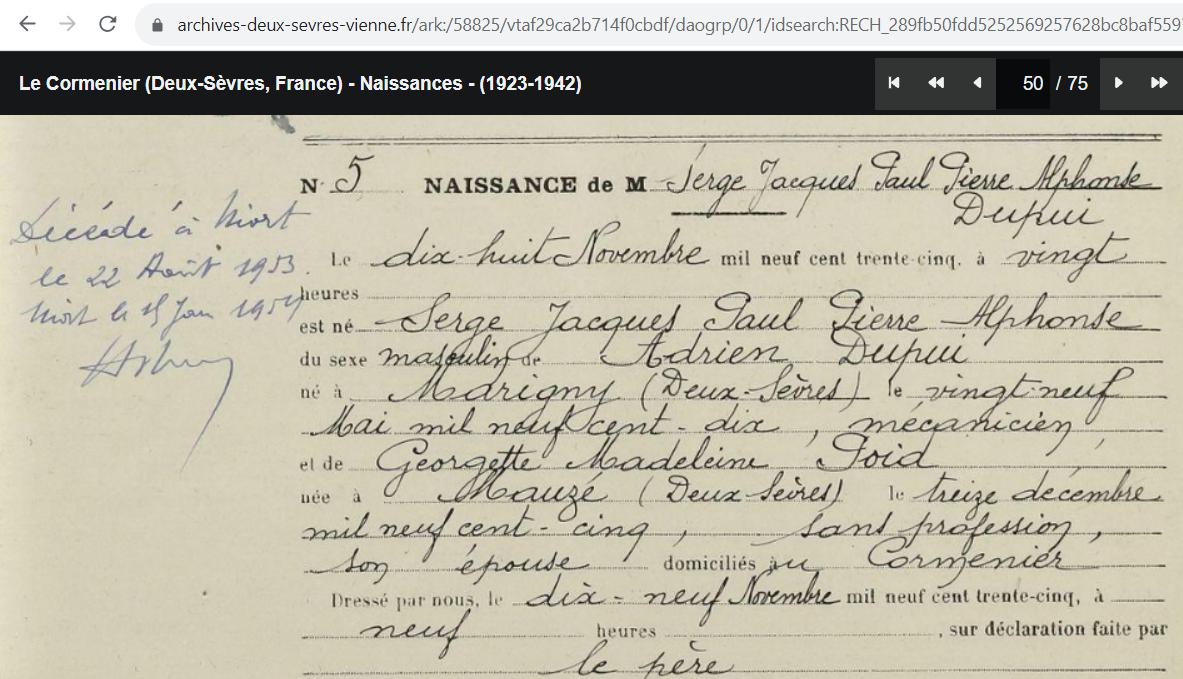 archives-deux-sevres-vienne.fr/ark:/58825/vtaf29ca2b714f0cbdf/daogrp/0/1/idsearch:RECH_289fb50fdd5252569257628bc8baf559
Le Cormenier (Deux-Sèvres, France) - Naissances - (1923-1942)
50 / 75
N° 5 NAISSANCE de M Serge Jacques Paul Pierre Alphonse
Dupui
Décédé à Niort
le 22 Août 1953.
Niort le 15 Jan 1954
Le dix-huit Novembre mil neuf cent trente-cinq, à vingt
heures
est né Serge Jacques Paul Pierre Alphonse
du sexe masculin de Adrien Dupui
né à Marigny (Deux-Sèvres) le vingt-neuf
Mai mil neuf cent-dix, mécanicien,
et de Georgette Madeleine
née à Mauzé (Deux-Sèvres) le treize décembre
mil neuf cent-cinq, sans profession,
son épouse domiciliés au Cormenier
Dressé par nous, le dix-neuf Novembre mil neuf cent trente-cinq, à
neuf heures , sur déclaration faite par
le père